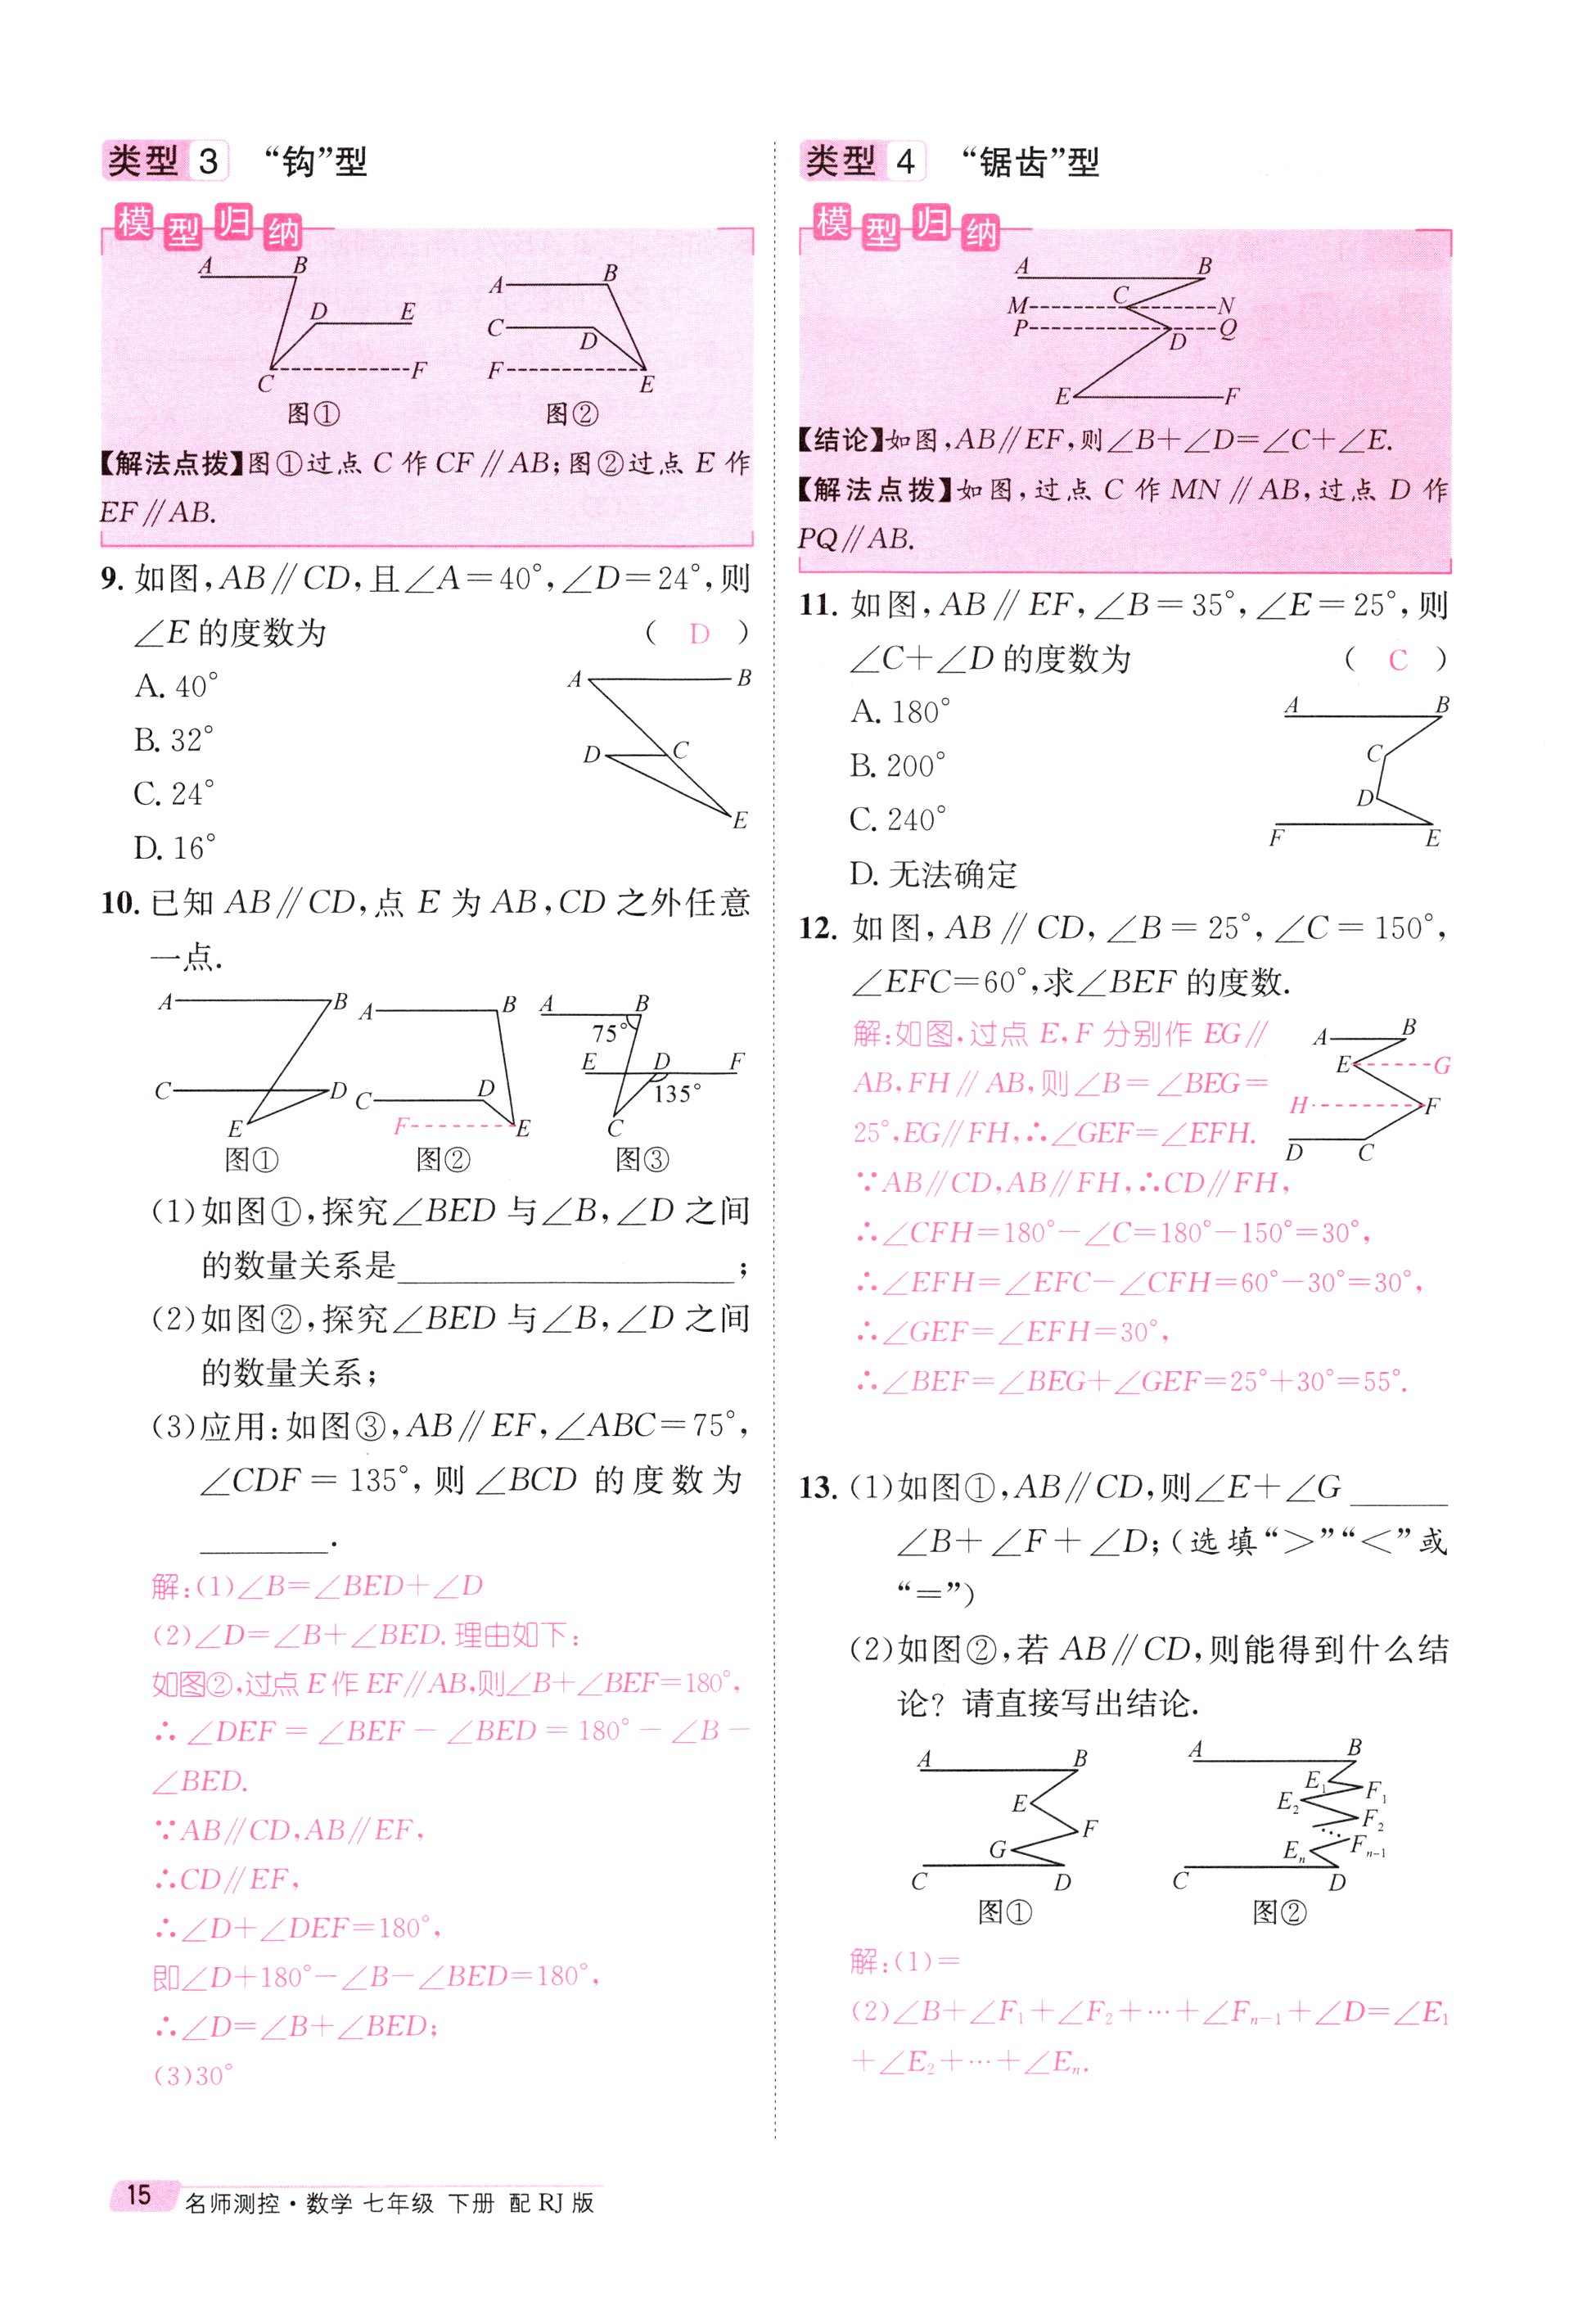 类型 3 “钩”型
模型归纳
A B
D E
C F
图①
A B
C D
F E
图②
【解法点拨】图①过点 C 作 CF∥AB;图②过点 E 作
EF∥AB.
9. 如图,AB∥CD,且∠A=40°,∠D=24°,则
∠E 的度数为 ( D )
A. 40°
B. 32°
C. 24°
D. 16°
A B
D C
E
10. 已知 AB∥CD,点 E 为 AB,CD 之外任意
一点.
A B
C D
E
图①
A B
C D
F E
图②
A B
75°
E D F
135°
C
图③
(1)如图①,探究∠BED 与∠B,∠D 之间
的数量关系是________;
(2)如图②,探究∠BED 与∠B,∠D 之间
的数量关系;
(3)应用:如图③,AB∥EF,∠ABC=75°,
∠CDF=135°,则∠BCD 的度数为
________.
解:(1)∠B=∠BED+∠D
(2)∠D=∠B+∠BED.理由如下:
如图②,过点 E 作 EF∥AB,则∠B+∠BEF=180°,
∴∠DEF=∠BEF-∠BED=180°-∠B-
∠BED.
∵AB∥CD,AB∥EF,
∴CD∥EF,
∴∠D+∠DEF=180°,
即∠D+180°-∠B-∠BED=180°,
∴∠D=∠B+∠BED;
(3)30°
类型 4 “锯齿”型
模型归纳
A B
M C N
P D Q
E F
【结论】如图,AB∥EF,则∠B+∠D=∠C+∠E.
【解法点拨】如图,过点 C 作 MN∥AB,过点 D 作
PQ∥AB.
11. 如图,AB∥EF,∠B=35°,∠E=25°,则
∠C+∠D 的度数为 ( C )
A. 180°
B. 200°
C. 240°
D. 无法确定
A B
C
D
F E
12. 如图,AB∥CD,∠B=25°,∠C=150°,
∠EFC=60°,求∠BEF 的度数.
解:如图,过点 E,F 分别作 EG∥
AB,FH∥AB,则∠B=∠BEG=
25°,EG∥FH,∴∠GEF=∠EFH.
∵AB∥CD,AB∥FH,∴CD∥FH,
∴∠CFH=180°-∠C=180°-150°=30°,
∴∠EFH=∠EFC-∠CFH=60°-30°=30°,
∴∠GEF=∠EFH=30°,
∴∠BEF=∠BEG+∠GEF=25°+30°=55°.
A B
E G
H F
D C
13. (1)如图①,AB∥CD,则∠E+∠G ____
∠B+∠F+∠D;(选填“>”“<”或
“=”)
(2)如图②,若 AB∥CD,则能得到什么结
论? 请直接写出结论.
A B
E
F
G
C D
图①
A B
E₁ F₁
E₂ F₂
⋯
Eₙ Fₙ₋₁
C D
图②
解:(1)=
(2)∠B+∠F₁+∠F₂+⋯+∠Fₙ₋₁+∠D=∠E₁
+∠E₂+⋯+∠Eₙ.
15 名师测控·数学 七年级 下册 配 RJ 版